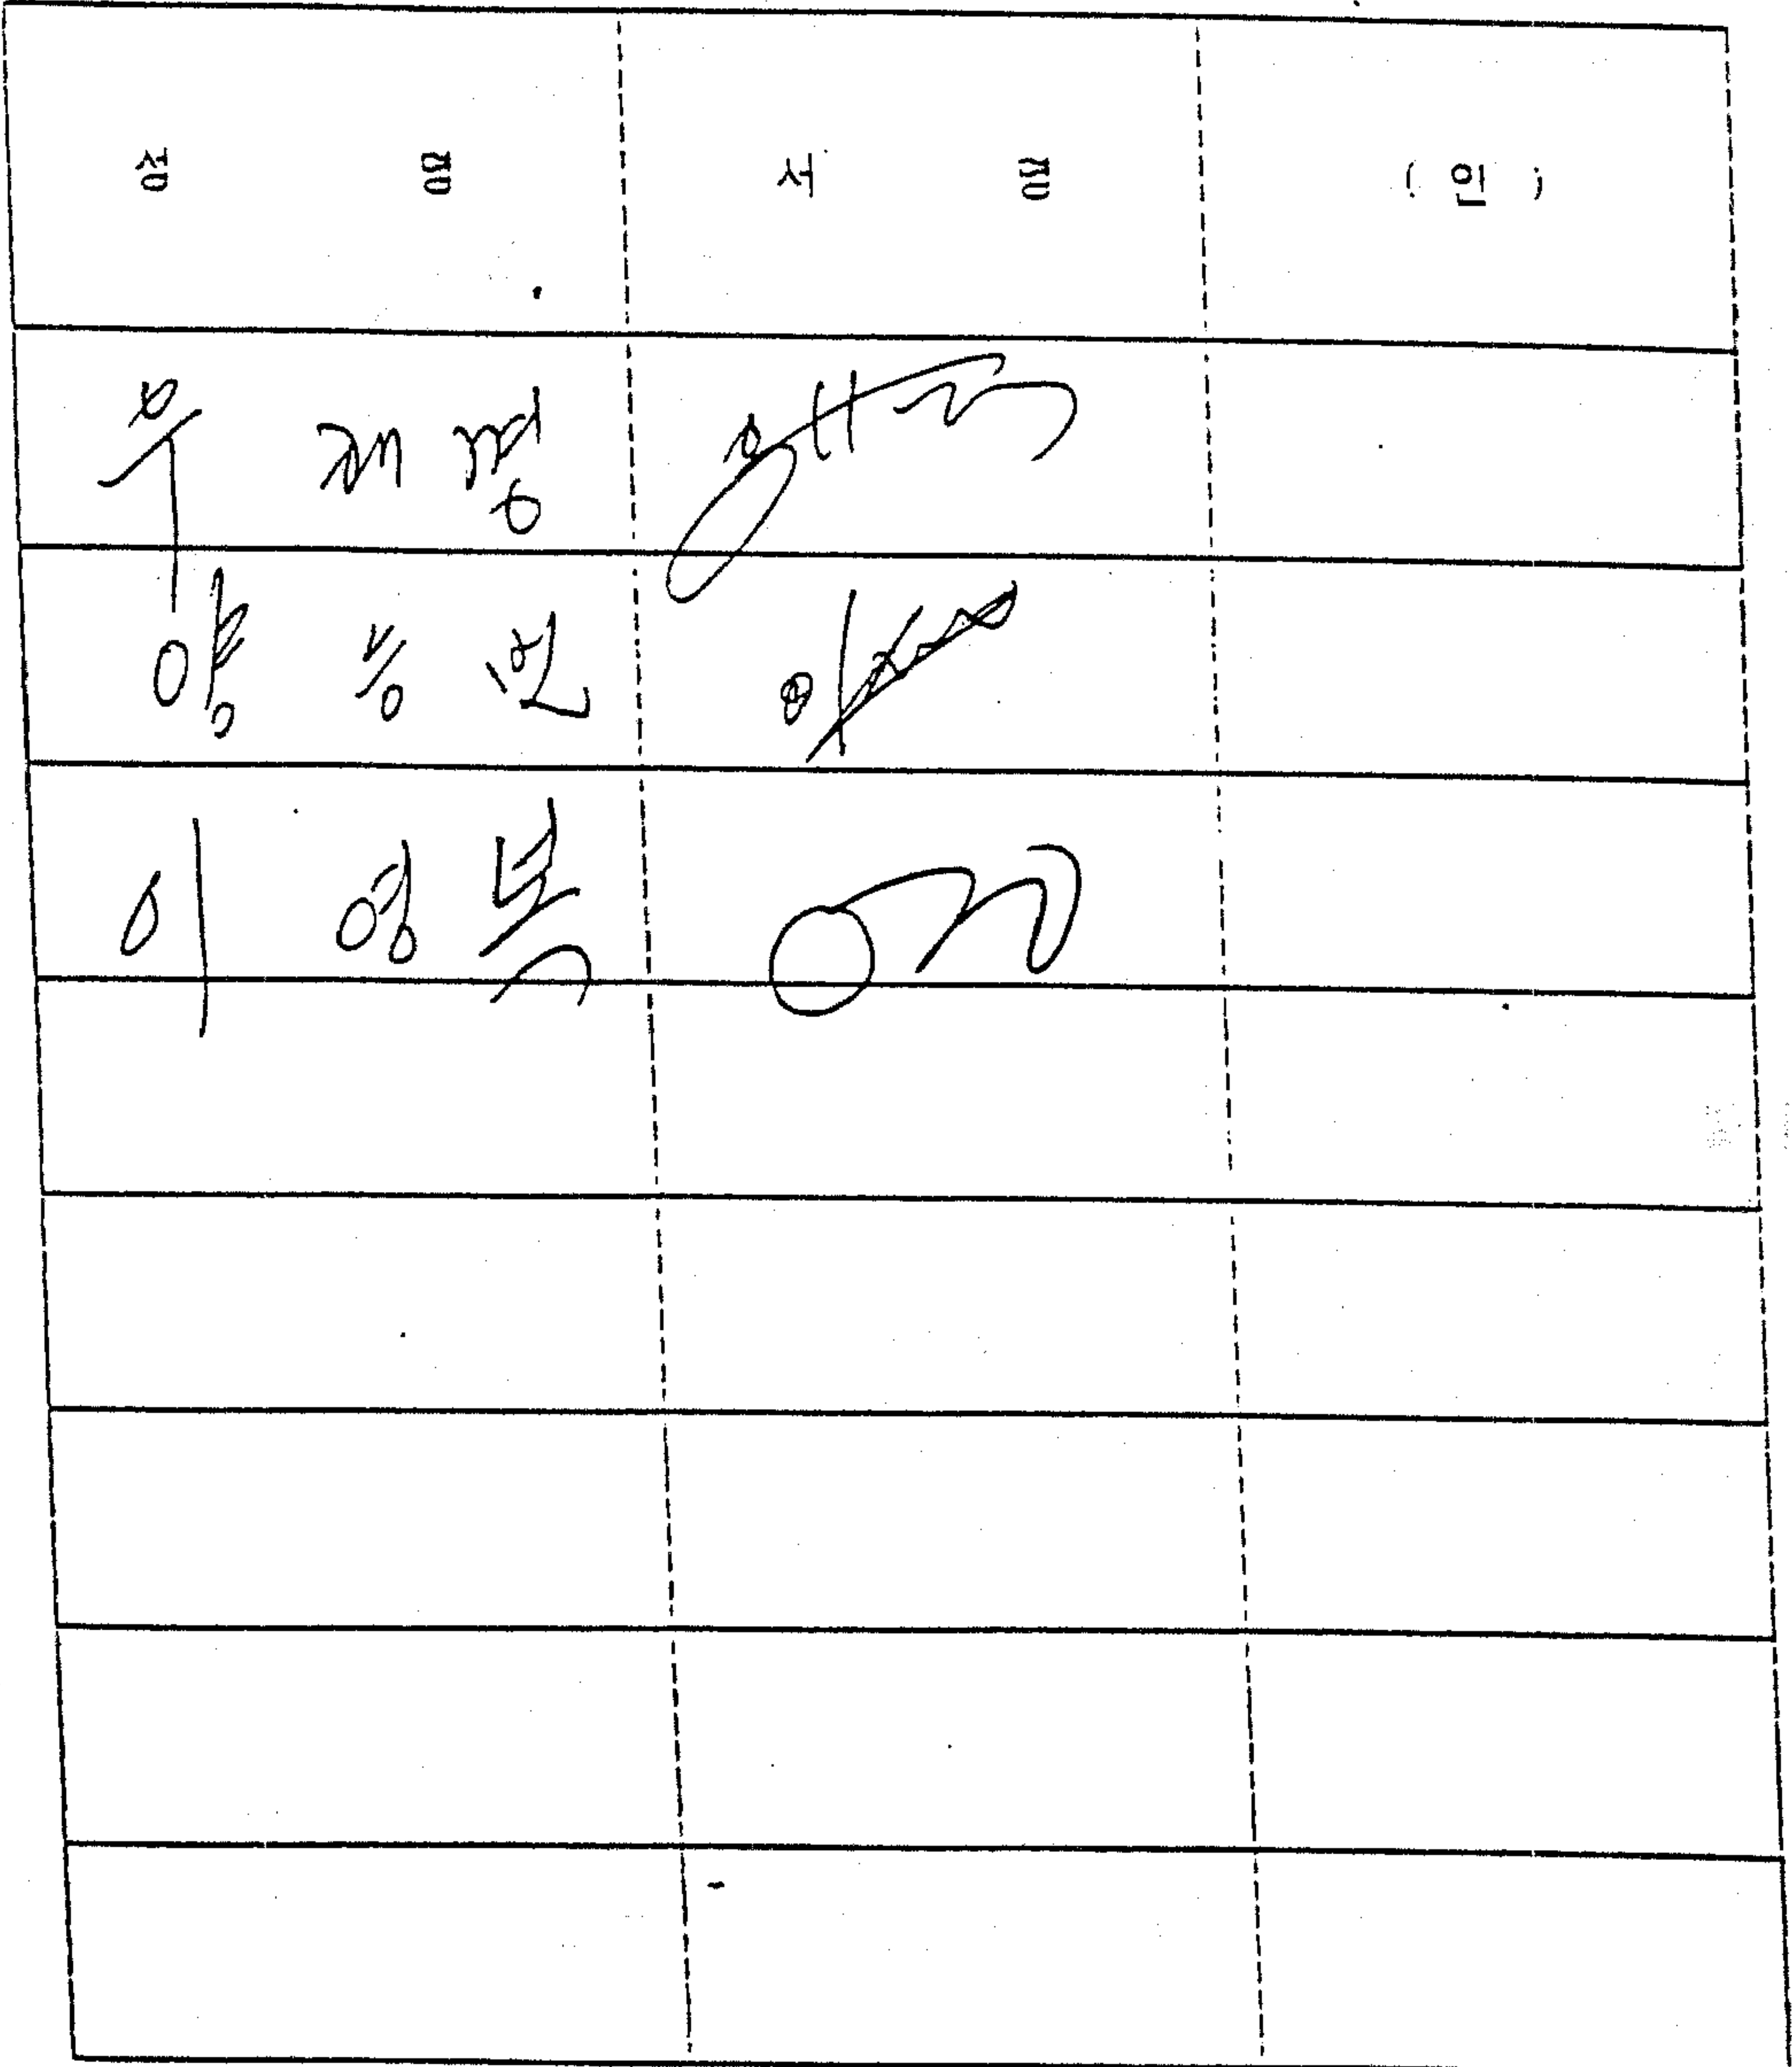 성 명 서 명 (인)
우 재 명
양 승 언
이 영 복